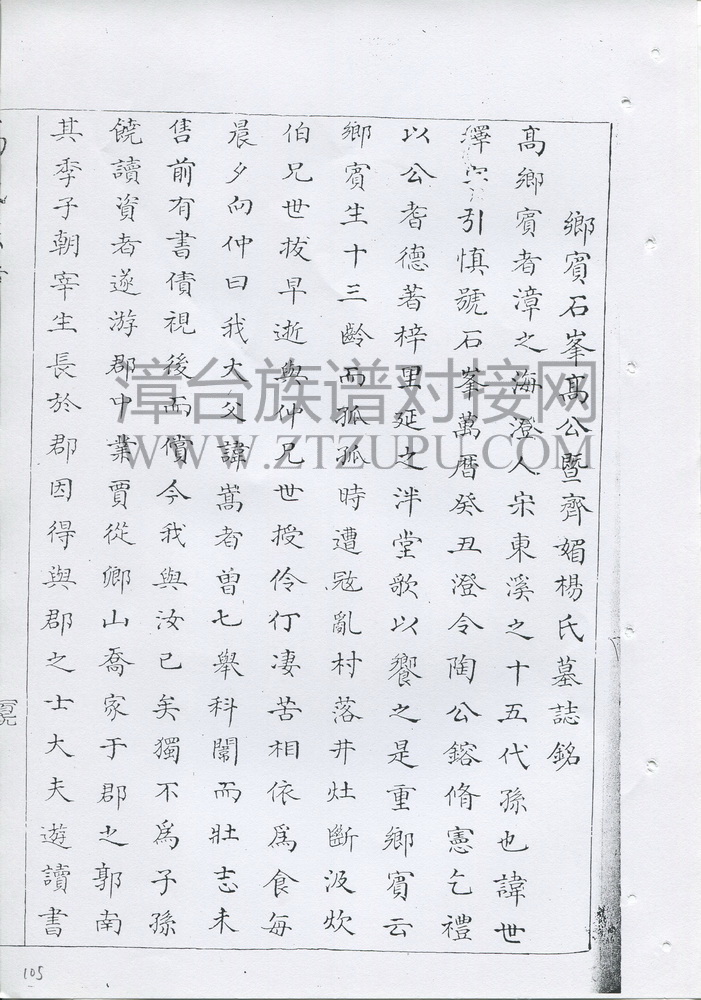 鄉賓石峯高公暨齊媚楊氏墓誌銘
高鄉賓者漳之海澄人宋東溪之十五代孫也諱世
澤字引慎號石峯萬曆癸丑澄令陶公鎔脩憲乞禮
以公耆德著梓里延之泮堂歌以饗之是重鄉賓云
鄉賓生十三齡而孤孤時遭寇亂村落井灶斷汲炊
伯兄世拔早逝與仲兄世授伶仃凄苦相依爲食每
晨夕向仲曰我大父諱嵩者曾七舉科闈而壯志未
售前有書債視後而償今我與汝已矣獨不爲子孫
饒讀資者遂游郡中業賈從鄉山喬家于郡之郭南
其季子朝宰生長於郡因得與郡之士大夫遊讀書
漳台族谱对接网
WWW.ZTZUPU.COM
105